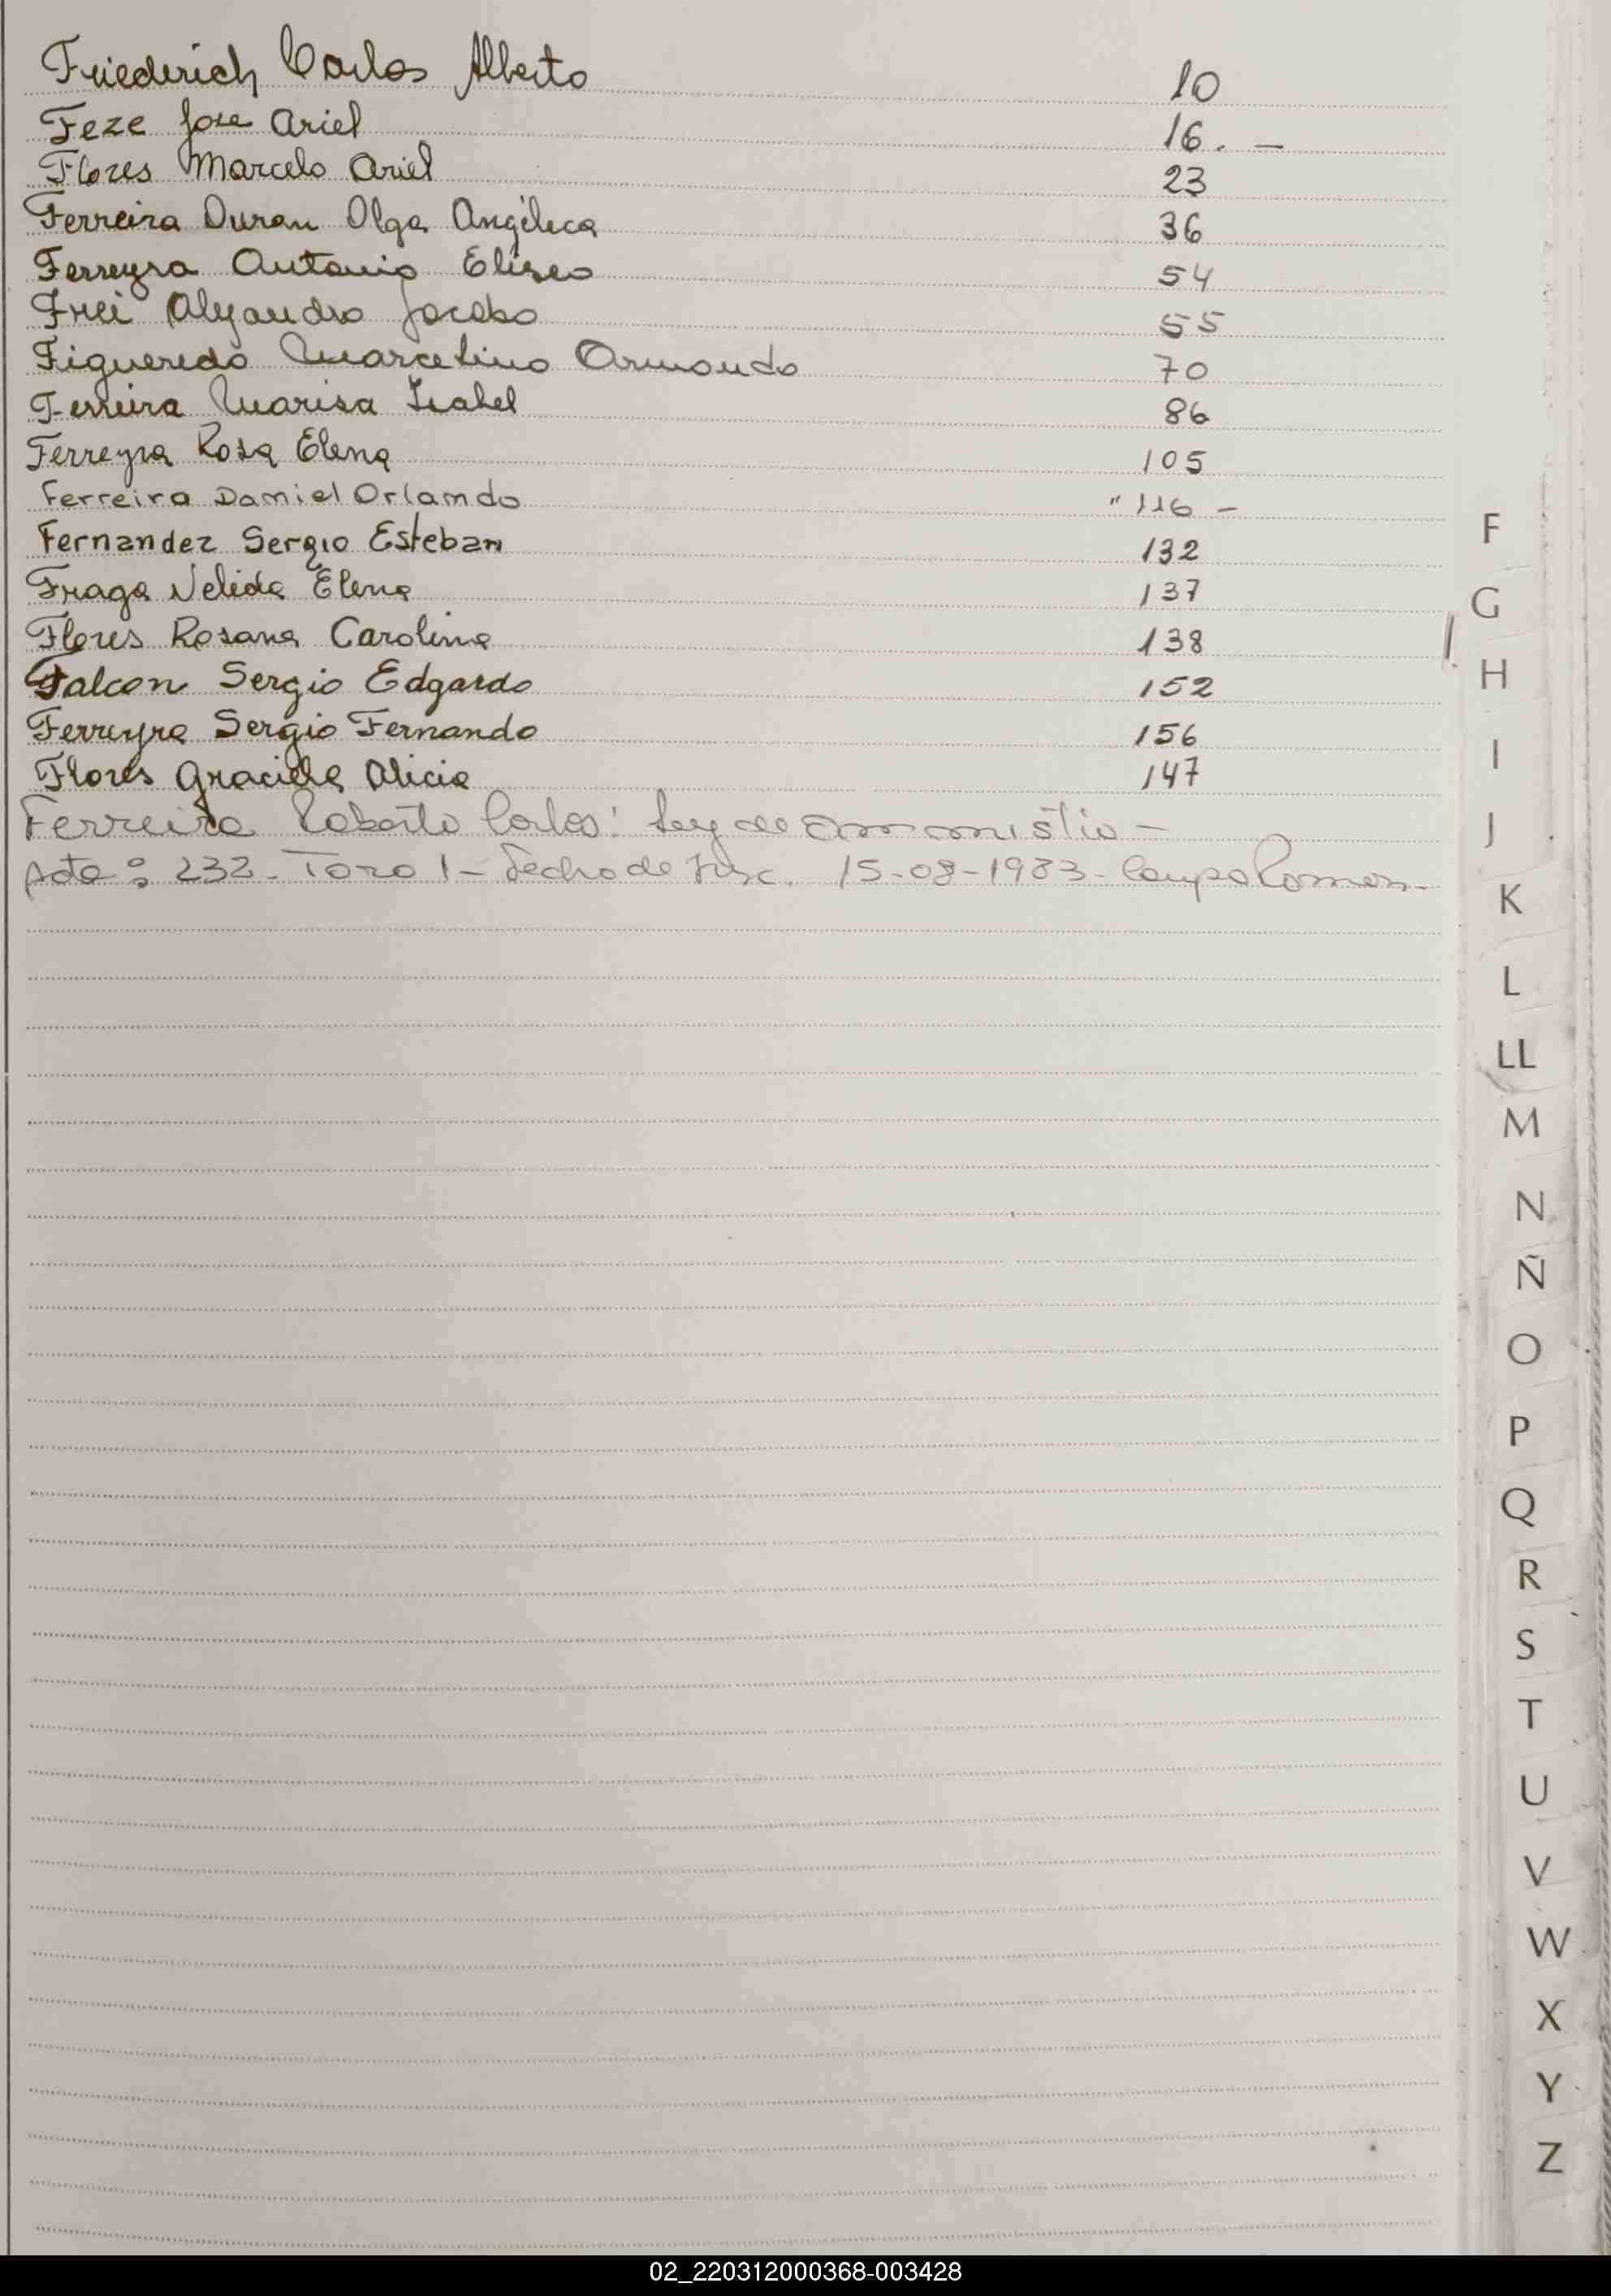 Friederich Carlos Alberto 10
Feze Jose Ariel 16. —
Flores Marcelo Ariel 23
Ferreira Duran Olga Angélica 36
Ferreyra Antonio Eliseo 54
Frei Alejandro Jacobo 55
Figueredo Marcelino Armando 70
Ferreira Marisa Isabel 86
Ferreyra Rosa Elena 105
Ferreira Daniel Orlando " 116 -
Fernandez Sergio Esteban 132
Fraga Nelida Elena 137
Flores Rosana Carolina 138
Falcon Sergio Edgardo 152
Ferreyra Sergio Fernando 156
Flores Graciela Alicia 147
Ferreira Roberto Carlos: Ley de amnistia -
Acta: 232 - Tomo 1 - Fecha de Insc. 15-08-1983 -
F
G
H
I
J
K
L
LL
M
N
Ñ
O
P
Q
R
S
T
U
V
W
X
Y
Z
02_220312000368-003428